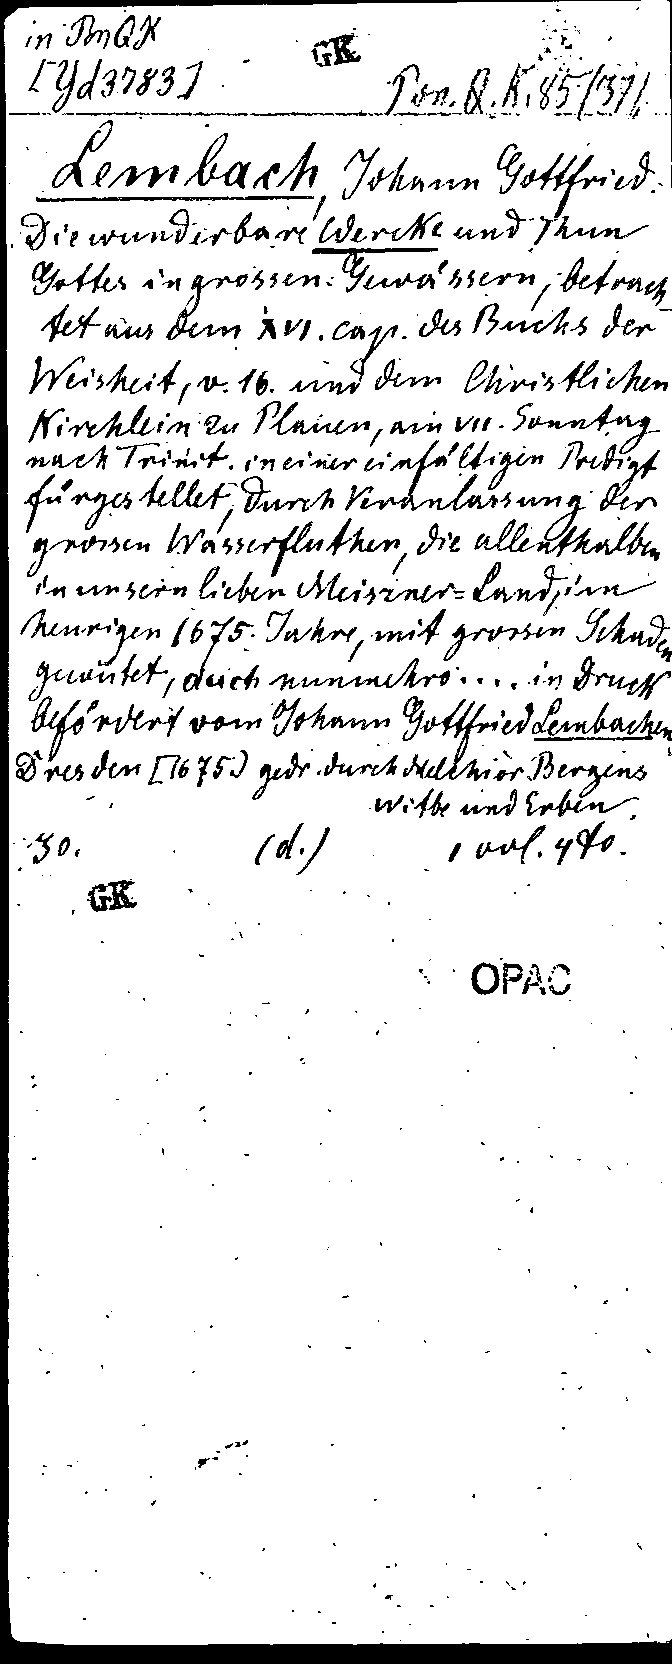 in PonQK
GK
[Yd 3783]
Pon. Q. K. 85 (37)
Lembach, Johann Gottfried.
Die wunderbare Wercke und Thun
Gottes in grossen Gewässern, betrach-
tet aus dem XVI. cap. des Buchs der
Weisheit, v. 16. und dem Christlichen
Kirchlein zu Plauen, am VII. Sonntag
nach Trinit. in einer einfältigen Predigt
fürgestellet, durch Veranlassung der
grossen Wasserfluthen, die allenthalben
in unsern lieben Meiszner=Land, im
heurigen 1675. Jahre, mit grossen Schaden
gewütet, auch nunmehro.... in Druck
befördert vom Johann Gottfried Lembachen.
Dresden [1675.] gedr. durch Melchior Bergens
Witbe und Erben.
30. (d.) 1 vol. 4to.
GK
OPAC